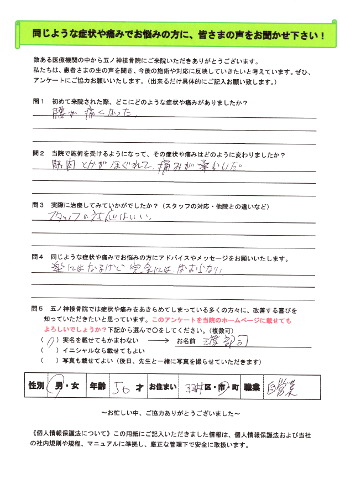 同じような症状や痛みでお悩みの方に、皆さまの声をお聞かせ下さい！
数ある医療機関の中から五ノ神接骨院にご来院いただきありがとうございます。
私たちは、患者さまの生の声を聞き、今後の施術や対応に反映していきたいと考えています。ぜひ、
アンケートにご協力お願いいたします。（出来るだけ具体的にご記入お願い致します。）
問１ 初めて来院された際、どこにどのような症状や痛みがありましたか？
腰が痛くなった
問２ 当院で施術を受けるようになって、その症状や痛みはどのように変わりましたか？
筋肉とかがほぐれて、痛みが
問３ 実際に治療してみていかがでしたか？（スタッフの対応・他院との違いなど）
スタッフの対応はいい。
問４ 同じような症状や痛みでお悩みの方にアドバイスやメッセージをお願いいたします。
楽にはなるけど完全には なおらない
問５ 五ノ神接骨院では症状や痛みをあきらめてしまっている多くの方々に、改善する喜びを
知っていただきたいと思っています。このアンケートを当院のホームページに載せても
よろしいでしょうか？下記から選んで○をしてください。（複数可）
（○）実名を載せてもかまわない → お名前
（ ）イニシャルなら載せてもよい
（ ）写真も載せてよい（後日、先生と一緒に写真を撮らせていただきます）
性別 男・女 年齢 56 才 お住まい 区・市・町 職業 自営業
～お忙しい中、ご協力ありがとうございました～
《個人情報保護法について》この用紙にご記入いただきました情報は、個人情報保護法および当社
の社内規則や規程、マニュアルに準拠し、厳正な管理下で安全に取扱います。